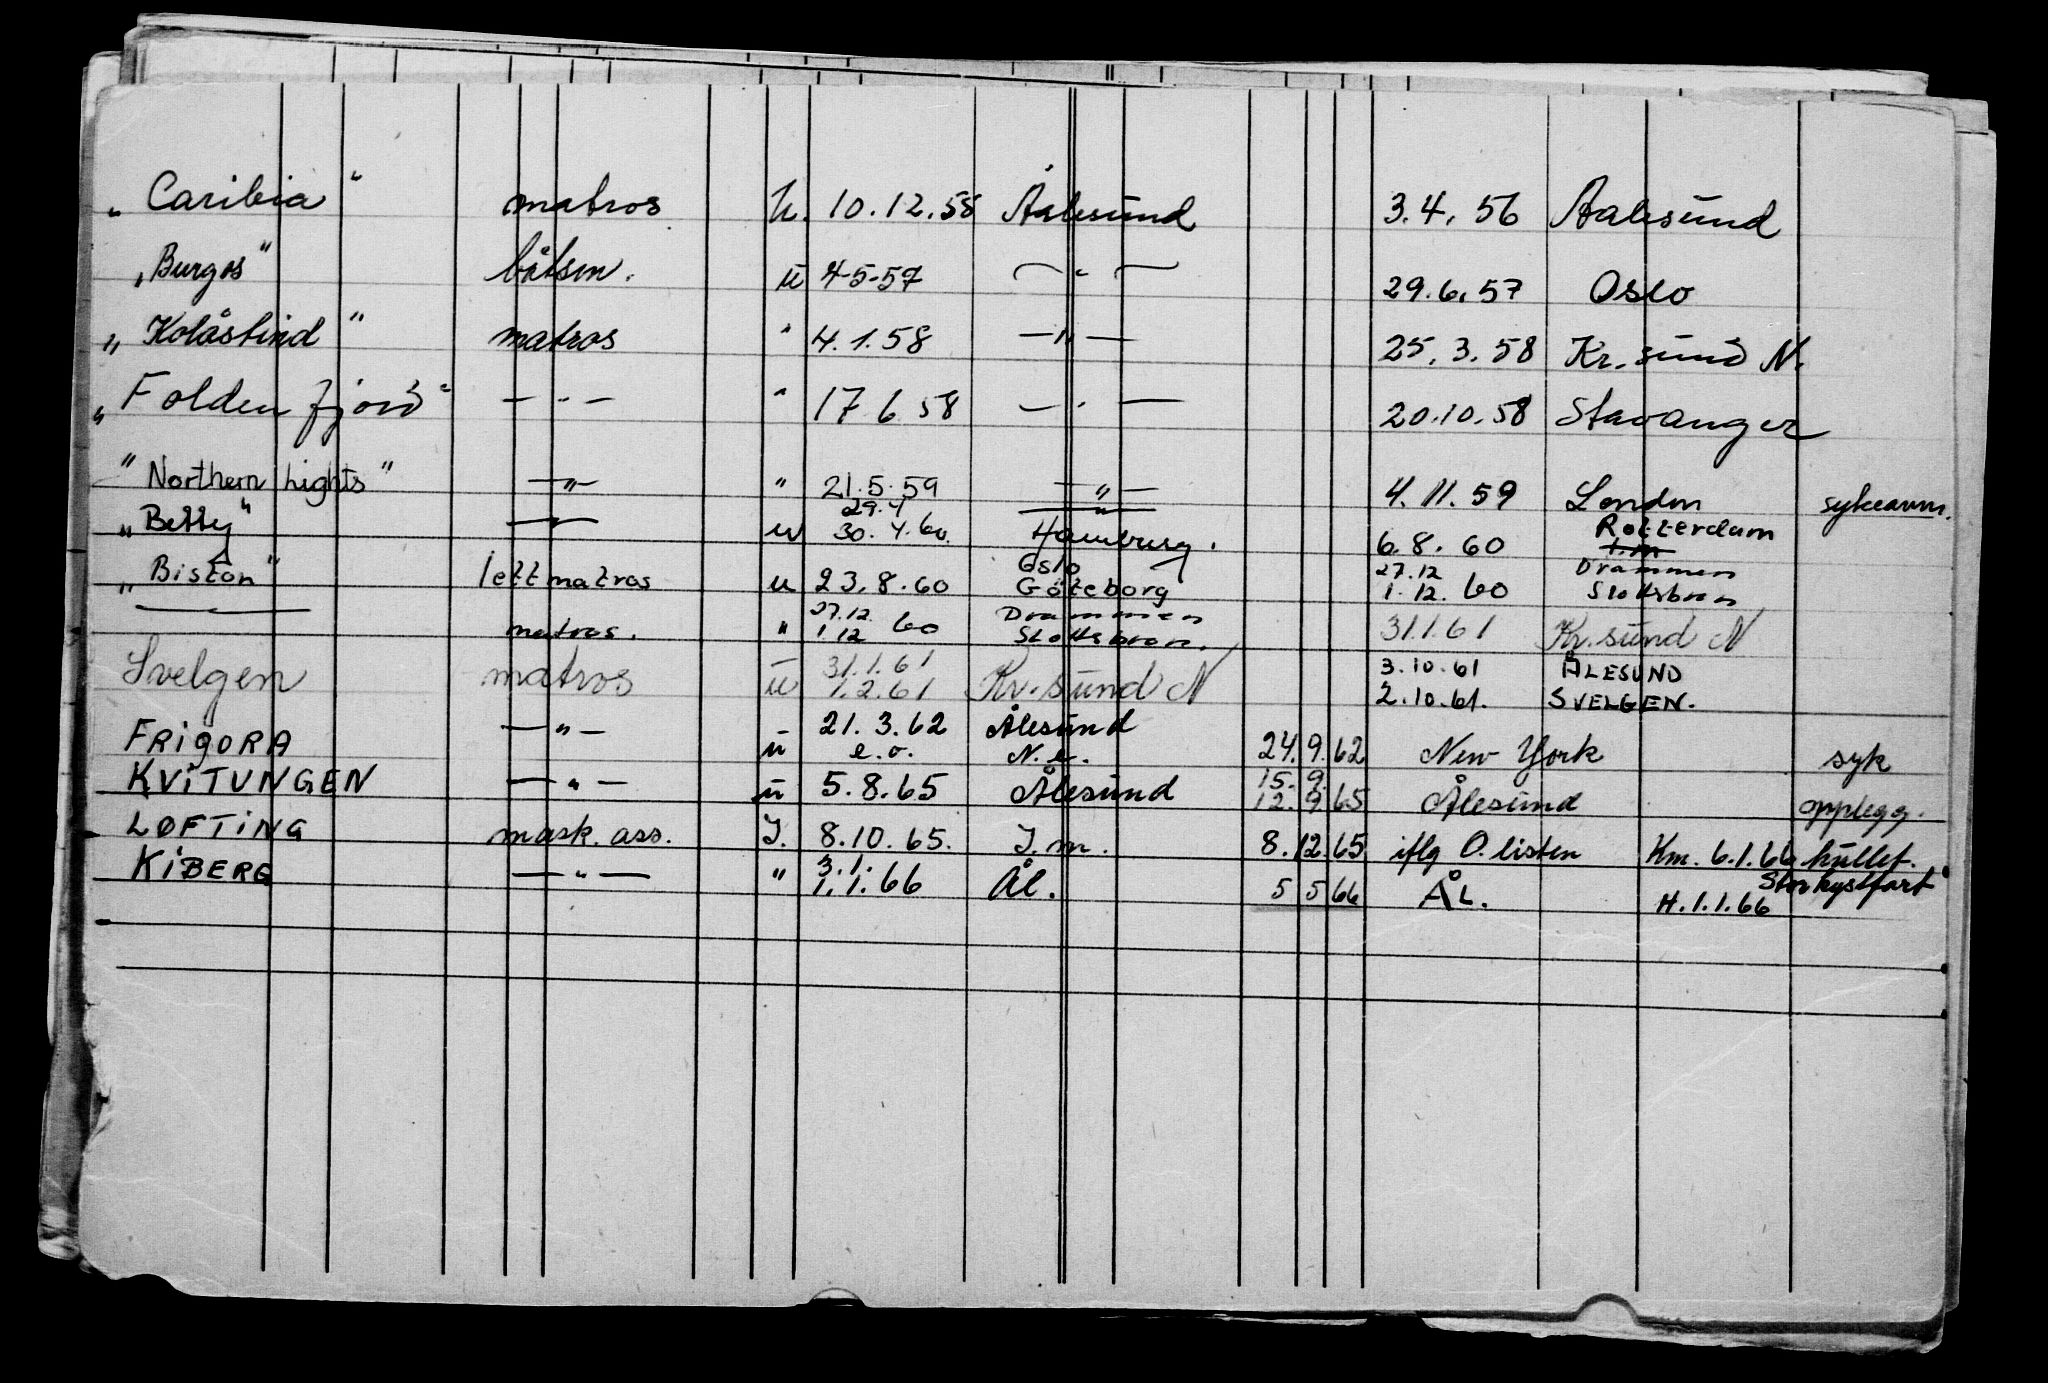 „ Caribia " matros U. 10.12.55 Ålesund 3.4.56 Aalesund
„Burgos" båtsm. u 4-5-57 — " — 29.6.57 Oslo
„ Kolåstind " matros " 4.1.58 — " — 25.3.58 Kr.sund N.
„ Folden fjord " — " — " 17 6 58 — " — 20.10.58 Stavanger
" Northern Lights " — " — " 21.5.59 — " — 4.11.59 London sykeavm.
29.4 — " — Rotterdam
„ Betty " — " — u 30.4.60. Hamburg. 6.8.60
Oslo 27.12 Drammen
„ Biston " lettmatros u 23.8.60 Göteborg 1.12.60 Slottsbron
27.12 Drammen
— matros. " 1.12 60 Slottsbron. 31.1.61 Kr.sund N
31.1.61 3.10.61 ÅLESUND
Svelgen matros u 1.2.61 Kr.sund N 2.10.61. SVELGEN.
21.3.62 Ålesund
FRIGORA — " — u e.o. N.e. 24.9.62 New York syk
15.9.
KVITUNGEN — " — u 5.8.65 Ålesund 12.9.65 Ålesund opplegg.
LØFTING mask. ass. I. 8.10.65. I.m. 8.12.65 iflg O.listen Km. 6.1.66 hullet.
3.1. Stor kystfart
KIBERG — " — " 1.1.66 Ål. 5 5 66 ÅL. H.1.1.66